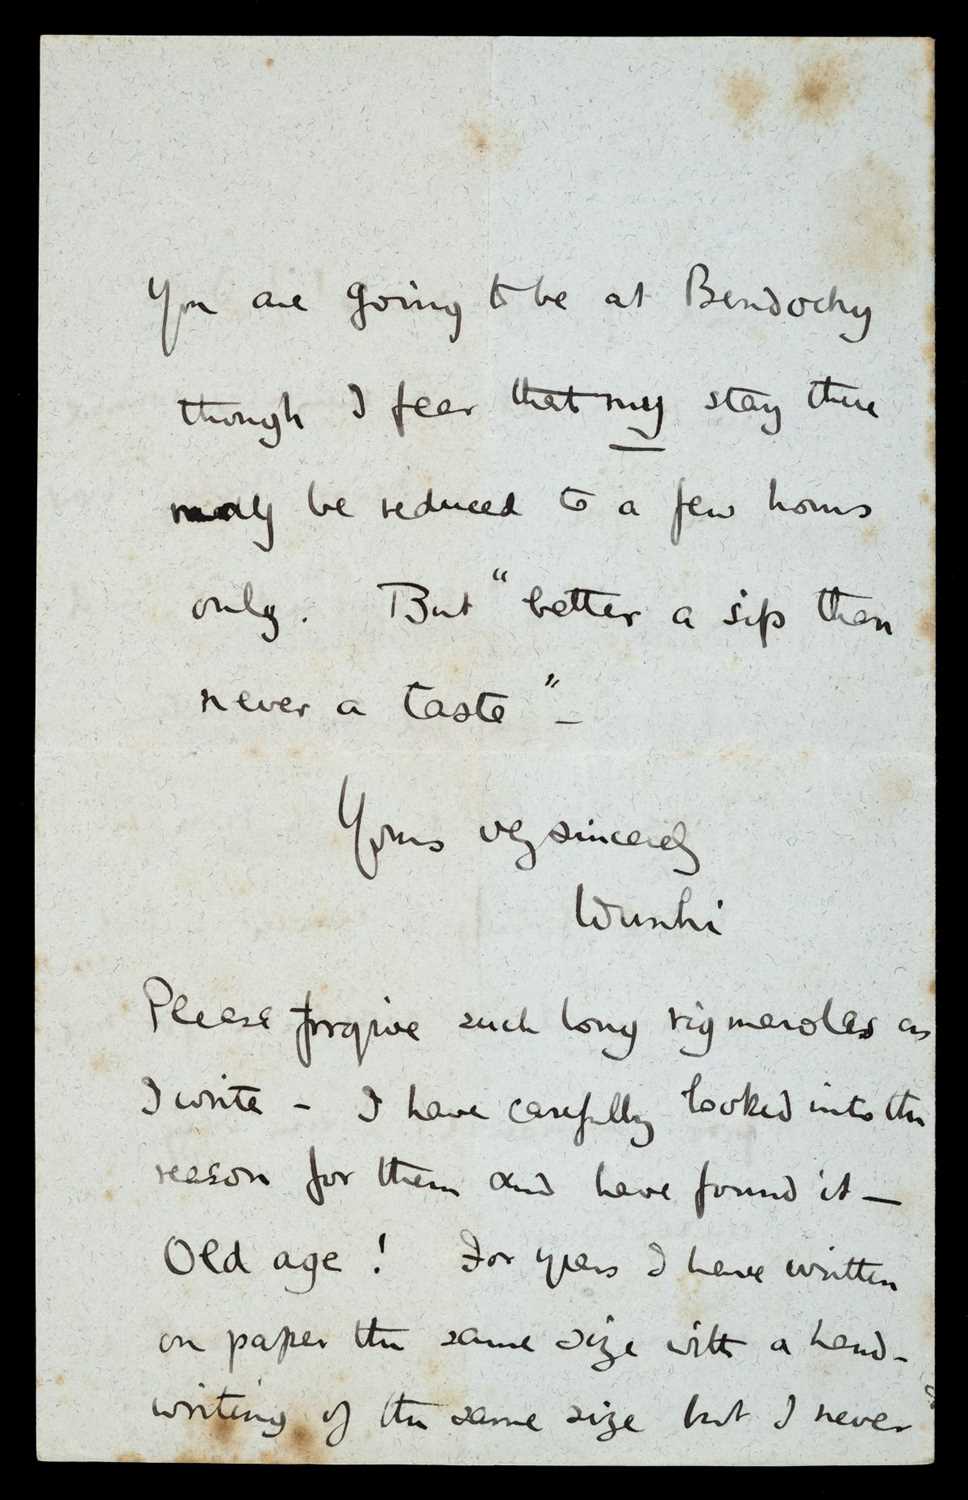 You are going to be at Bendochy
though I fear that my stay there
may be reduced to a few hours
only. But "better a sip than
never a taste" –
Yours vy sincerely
Please forgive such long rigmaroles as
I write – I have carefully looked into the
reason for them and have found it –
Old age! For years I have written
on paper the same size with a hand-
writing of the same size but I never